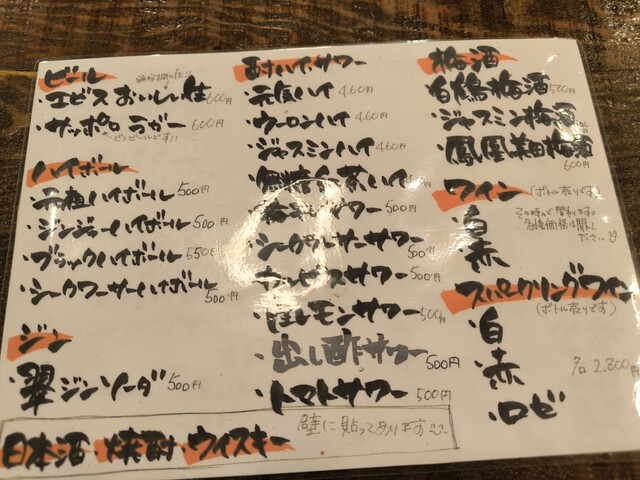 ビール
エビス おいしい生 600円
サッポロ ラガー 600円
ビンビールです
ハイボール
元祖ハイボール 500円
ジンジャーハイボール 500円
ブラックハイボール 550円
シークワーサーハイボール 500円
ジン
翠 ジンソーダ 500円
酎ハイ・サワー
元気ハイ 460円
ウーロンハイ 460円
ジャスミンハイ 460円
無糖 茶ハイ
サワー 500円
シークワーサーサワー 500円
カルピスサワー 500円
生レモンサワー 500円
出し酢サワー 500円
トマトサワー 500円
梅酒
白鶴梅酒 580円
ジャスミン梅酒
鳳凰美田梅酒 600円
ワイン (ボトル売りです)
その時々で変わります。
名・価格は聞いて
ください
白
赤
スパークリングワイン
(ボトル売りです)
白
赤
ロゼ
各 2,800円
日本酒 焼酎 ウイスキー 壁に貼ってあります